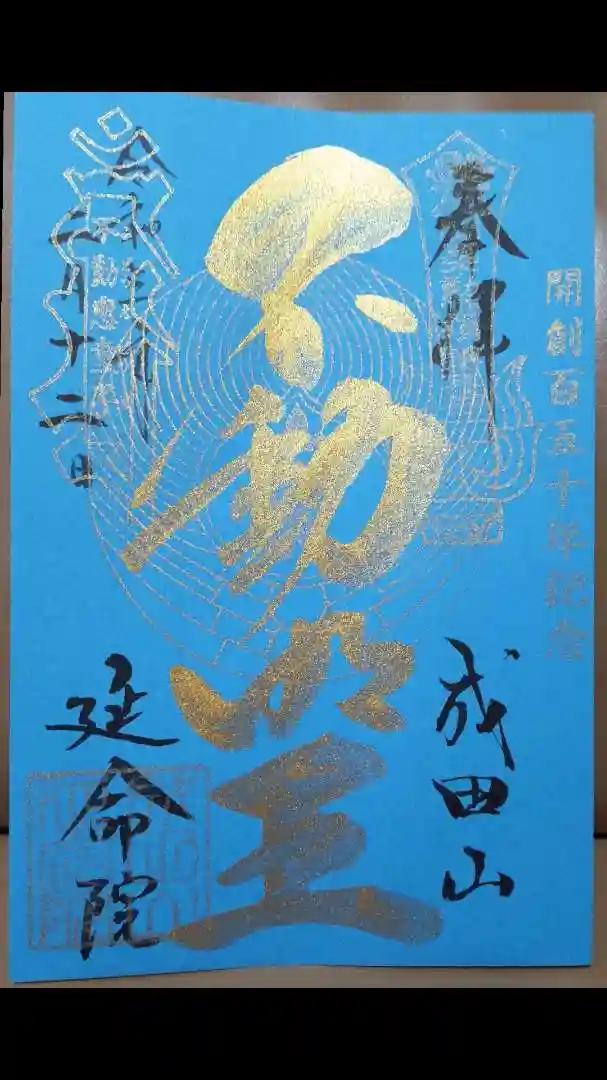 開創百五十年記念
奉拝
成田山
不動明王
令和
二月十二日
延命院